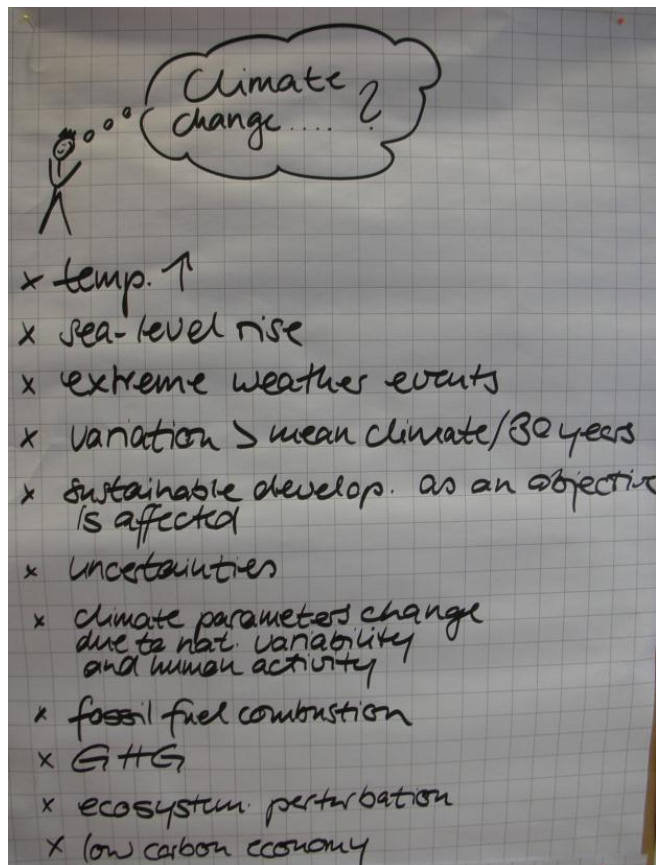 Climate
change.... ?
x temp. ↑
x sea-level rise
x extreme weather events
x variation > mean climate/30 years
x sustainable develop. as an objective
is affected
x uncertainties
x climate parameters change
due to nat. variability
and human activity
x fossil fuel combustion
x GHG
x ecosystem perturbation
x low carbon economy